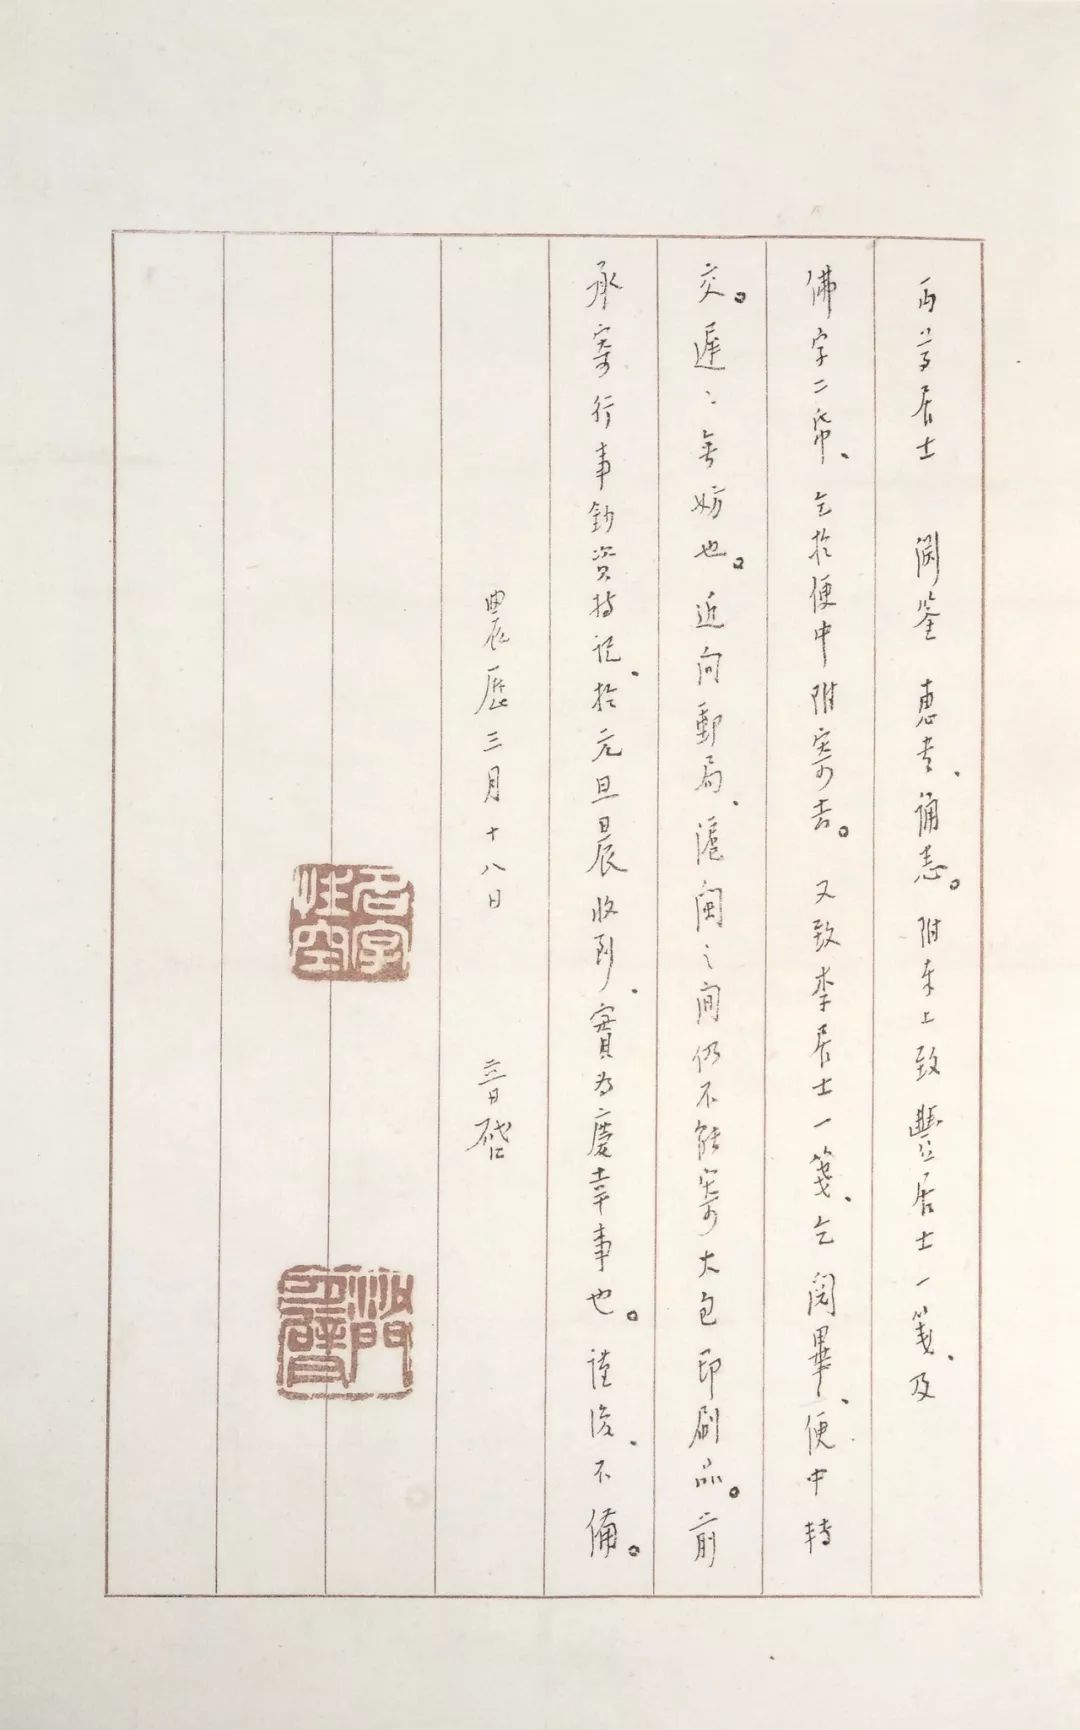 丏尊居士 淵鉴 惠書、誦悉。附奉上致 豐居士一箋、及
佛字二紙、乞於便中附寄去。又致李居士一箋、乞 閱畢、便中轉
交。遲〻無妨也。近向郵局、滬閩之間仍不能寄大包印刷品。前
承寄行事鈔資持記、於元旦晨收到、實為慶幸事也。謹復、不備。
農歷三月十八日 音啓
名字性空
沙門